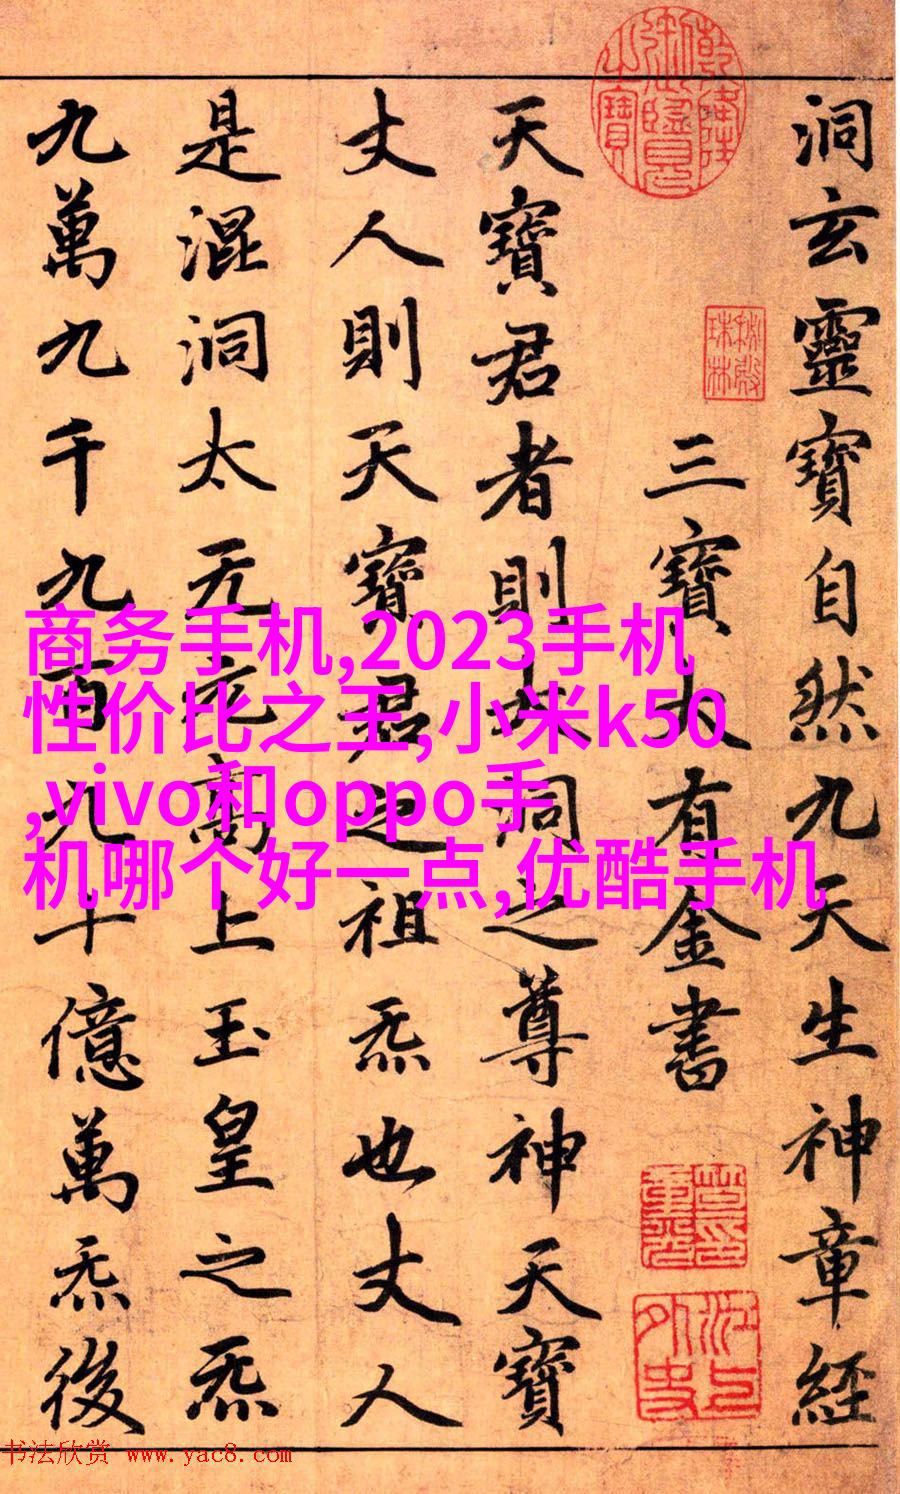 洞玄靈寶自然九天生神章經
三寶大有金書
天寶君者則大洞之尊神天寶
丈人則天寶君之祖炁也丈人
是混洞太无元高上玉皇之炁
九萬九千九百九十億萬炁後
乾隆御覽之寶
秘殿珠林
商务手机,2023手机
性价比之王,小米k50
,vivo和oppo手
机哪个好一点,优酷手机
书法欣赏 www.yac8.com